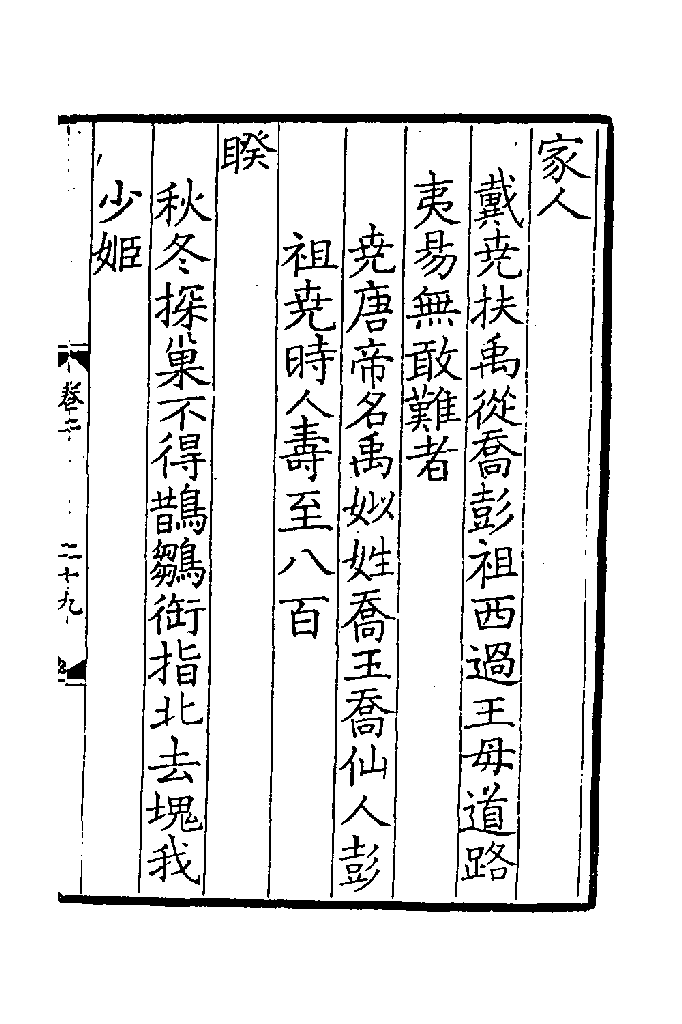 家人
戴尭扶禹從喬彭祖西過王母道路
夷易無敢難者
尭唐帝名禹姒姓喬王喬仙人彭
祖尭時人壽至八百
睽
秋冬探巢不得鵲鶵銜指北去媿我
少姬
卷二
二十九